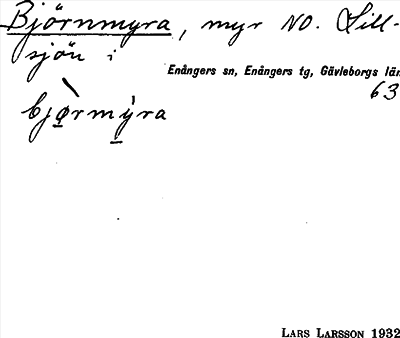 Björnmyra, myr NO. Lill-
sjön i
Enångers sn, Enångers tg, Gävleborgs län
63
bjo̱rmy̱ra
LARS LARSSON 1932